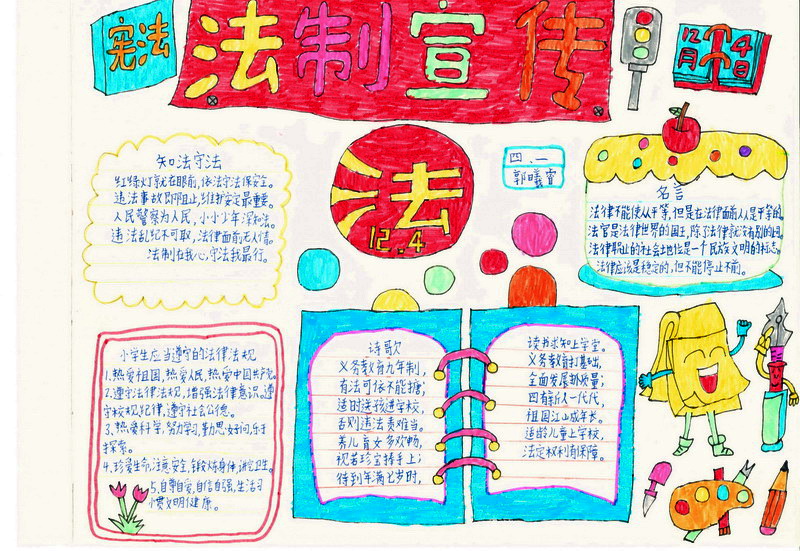 宪法
法制宣传
12月4日
知法守法
红绿灯就在眼前,依法守法保安全。
违法事故即阻止,维护安定最重要。
人民警察为人民,小小少年深知法。
违法乱纪不可取,法律面前无人情。
法制在我心,守法我最行。
法
12.4
四、一
郭曦睿
名言
法律不能使人平等,但是在法律面前人人是平等的。
法官是法律世界的国王,除了法律就没有别的上司。
法律职业的社会地位是一个民族文明的标志。
法律应该是稳定的,但不能停止不前。
小学生应当遵守的法律法规
1、热爱祖国,热爱人民,热爱中国共产党。
2、遵守法律法规,增强法律意识。遵
守校规纪律,遵守社会公德。
3、热爱科学,努力学习,勤思好问,乐于
探索。
4、珍爱生命,注意安全,锻炼身体,讲究卫生。
5、自尊自爱,自信自强,生活习
惯文明健康。
诗歌
义务教育九年制,
有法可依不能搪;
适时送孩进学校,
否则违法责难当。
养儿育女多欢畅,
视若珍宝捧手上;
待到年满七岁时,
读书求知上学堂。
义务教育打基础,
全面发展量;
四有新人一代代,
祖国江山成年长。
适龄儿童上学校,
法定权利有保障。